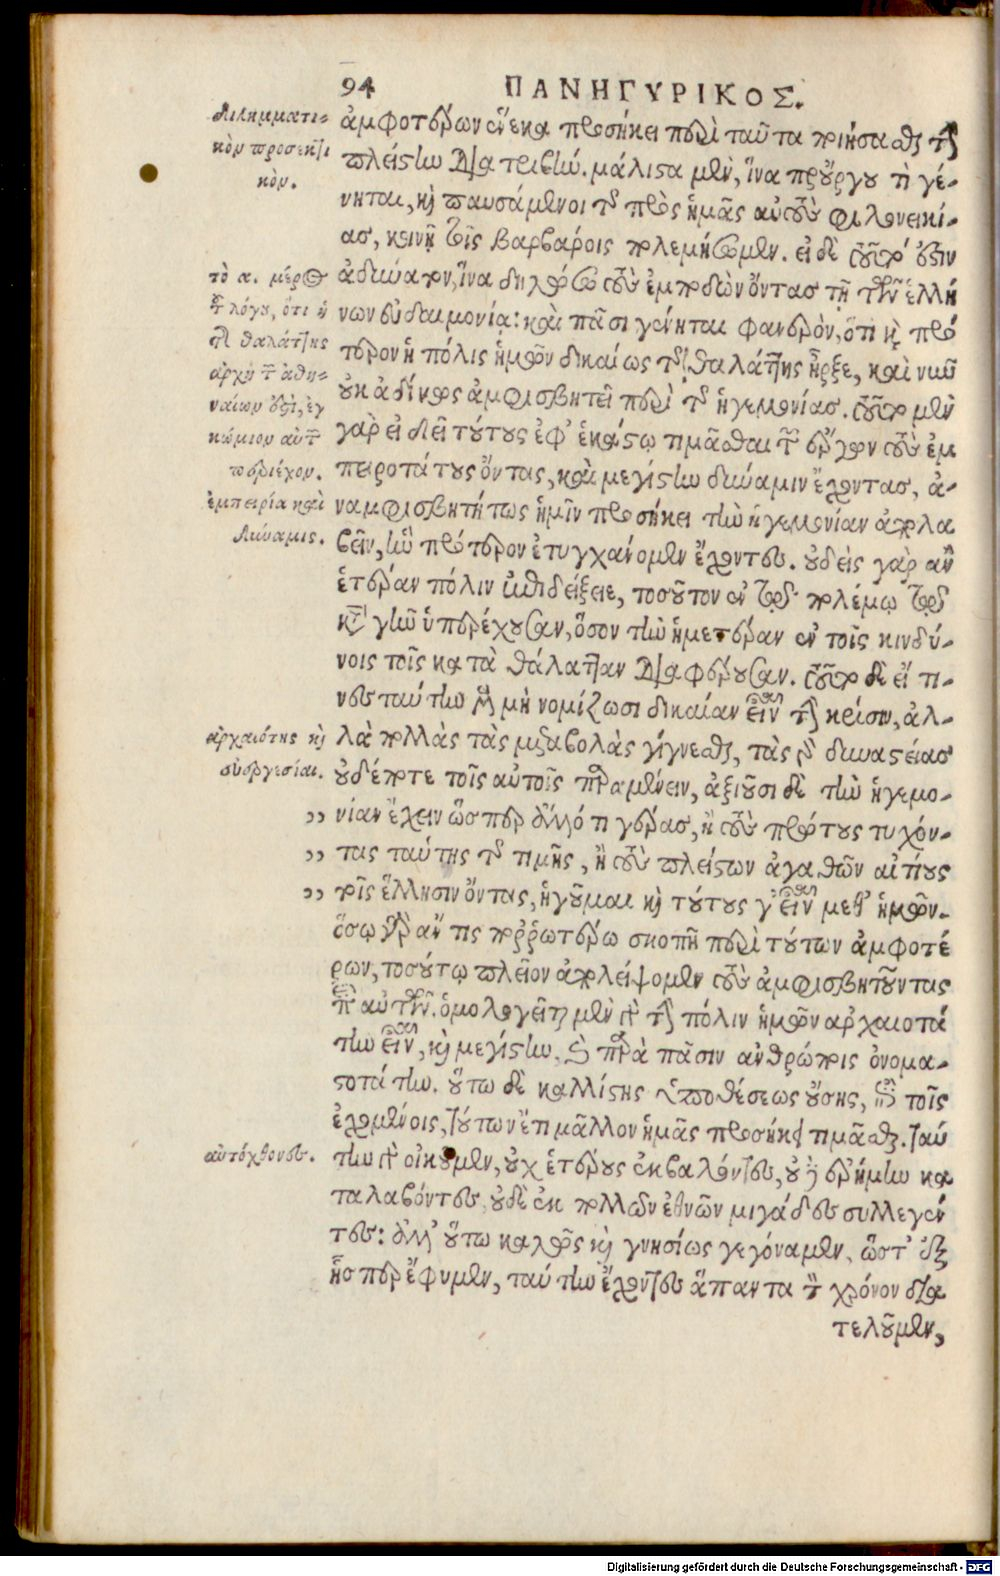 94 ΠΑΝΗΓΥΡΙΚΟΣ.
διλημματι-
κὸν προσεκτι
κόν.
ἀμφοτέρων ἕνεκα προσήκει περὶ ταῦτα ποιήσασθαι τὴν
πλείστην διατριβήν. μάλιστα μὲν, ἵνα προὔργου τὶ γέ-
νηται, καὶ παυσάμενοι τῆς πρὸς ἡμᾶς αὐτοὺς φιλονεικί-
ας, κοινῇ τοῖς βαρβάροις πολεμήσωμεν. εἰ δὲ τοῦτ' ἐστὶν
τὸ α. μέρος
τοῦ λόγου, ὅτι ἡ
τῆς θαλάττης
ἀρχὴ τῶν ἀθη-
ναίων ἐστὶ, ἐγ
κώμιον αὐτῶν
περιέχον.
ἐμπειρία καὶ
δύναμις.
ἀδύνατον, ἵνα δηλώσω τοὺς ἐμποδὼν ὄντας τῇ τῶν ἑλλή
νων εὐδαιμονίᾳ: καὶ πᾶσι γένηται φανερὸν, ὅτι καὶ πρό
τερον ἡ πόλις ἡμῶν δικαίως τῆς θαλάττης ἦρξε, καὶ νῦν
οὐκ ἀδίκως ἀμφισβητεῖ περὶ τῆς ἡγεμονίας. τοῦτο μὲν
γὰρ εἰ δεῖ τούτους ἐφ' ἑκάστῳ τιμᾶσθαι τῶν ἔργων τοὺς ἐμ
πειροτάτους ὄντας, καὶ μεγίστην δύναμιν ἔχοντας, ἀ-
ναμφισβητήτως ἡμῖν προσήκει τὴν ἡγεμονίαν ἀπολα
βεῖν, ἣν πρότερον ἐτυγχάνομεν ἔχοντες. οὐδεὶς γὰρ ἂν
ἑτέραν πόλιν ἐπιδείξειε, τοσοῦτον ἐν τῷ πολέμῳ τῷ
κατὰ γῆν ὑπερέχουσαν, ὅσον τὴν ἡμετέραν ἐν τοῖς κινδύ-
νοις τοῖς κατὰ θάλατταν διαφέρουσαν. τοῦτο δὲ εἴ τι-
νες ταύτην μὲν μὴ νομίζωσι δικαίαν εἶναι τὴν κρίσιν, ἀλ-
ἀρχαιότης καὶ
εὐεργεσίαι.
λὰ πολλὰς τὰς μεταβολὰς γίγνεσθαι, τὰς γὰρ δυναστείας
οὐδέποτε τοῖς αὐτοῖς παραμένειν, ἀξιοῦσι δὲ τὴν ἡγεμο-
,, νίαν ἔχειν ὥσπερ ἄλλό τι γέρας, ἢ τοὺς πρώτους τυχόν-
,, τας ταύτης τῆς τιμῆς, ἢ τοὺς πλείστων ἀγαθῶν αἰτίους
,, τοῖς ἕλλησιν ὄντας, ἡγοῦμαι καὶ τούτους γ' εἶναι μεθ' ἡμῶν.
ὅσῳ γὰρ ἄν τις πορρωτέρω σκοπῇ περὶ τούτων ἀμφοτέ
ρων, τοσούτῳ πλεῖον ἀπολείψομεν τοὺς ἀμφισβητοῦντας
περὶ αὐτῶν. ὁμολογεῖται μὲν γὰρ τὴν πόλιν ἡμῶν ἀρχαιοτά
την εἶναι, καὶ μεγίστην, καὶ παρὰ πᾶσιν ἀνθρώποις ὀνομα-
στοτάτην. οὕτω δὲ καλλίστης ὑποθέσεως οὔσης, ἐπὶ τοῖς
ἐχομένοις, τούτων ἔτι μᾶλλον ἡμᾶς προσήκει τιμᾶσθαι. ταύ
αὐτόχθονες.
την γὰρ οἰκοῦμεν, οὐχ ἑτέρους ἐκβαλόντες, οὐδ' ἐρήμην κα
ταλαβόντες, οὐδὲ ἐκ πολλῶν ἐθνῶν μιγάδες συλλεγέν
τες: ἀλλ' οὕτω καλῶς καὶ γνησίως γεγόναμεν, ὥστ' ἐξ
ἧσπερ ἔφυμεν, ταύτην ἔχοντες ἅπαντα τὸν χρόνον δια
τελοῦμεν,
Digitalisierung gefördert durch die Deutsche Forschungsgemeinschaft - DFG